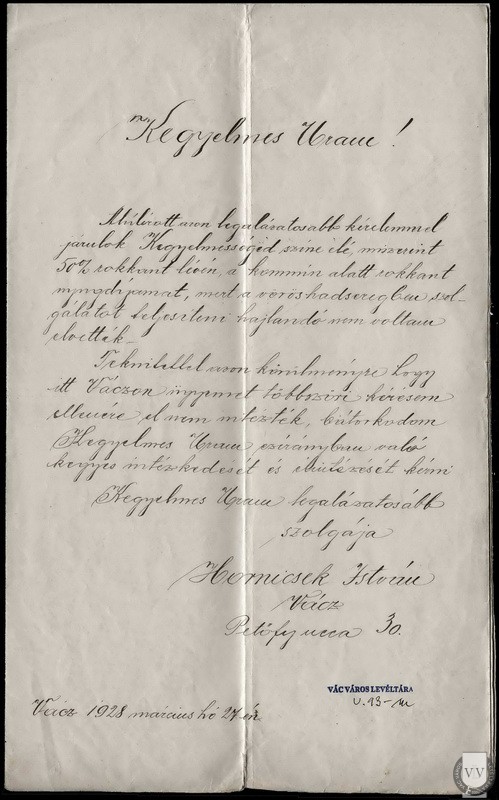 Kegyelmes Uram!
Alulírott azon legalázatosabb kérelemmel
járulok Kegyelmességed színe elé, miszerint
50% rokkant lévén, a kommün alatt rokkant
nyugdíjamat, mert a vöröshadseregben szol-
gálatot teljesíteni hajlandó nem voltam
elvették.
Tekintettel azon körülményre hogy
itt Váczon ügyemet többszöri kérésem
ellenére el nem intézték, bátorkodom
Kegyelmes Uram ezirányban való
kegyes intézkedését és elintézését kérni
Kegyelmes Uram legalázatosabb
szolgája
Hornicsek István
Vácz
Petőfy ucca 30.
VÁC VÁROS LEVÉLTÁRA
V. 13-
Vácz 1928 március hó 27-én
VV